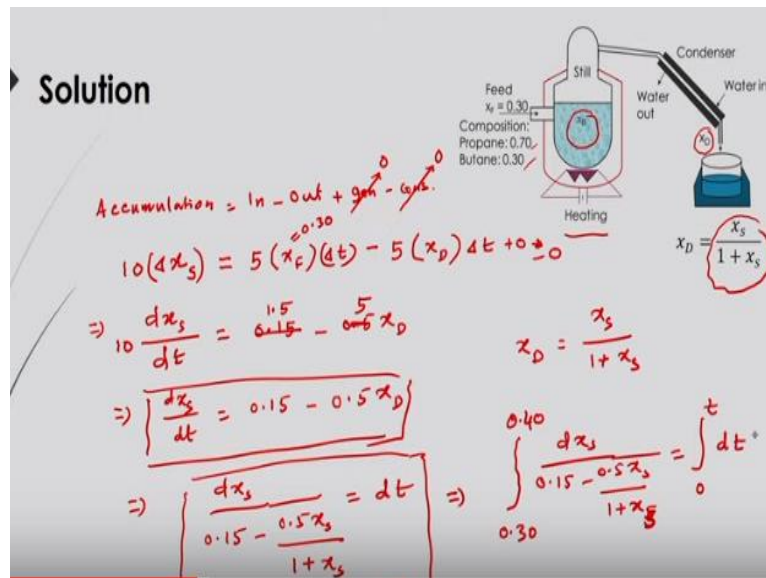 Solution
Feed
x_F = 0.30
Composition:
Propane: 0.70
Butane: 0.30
Still
x_B
Condenser
Water in
Water out
x_D
Heating
x_D = x_S / (1 + x_S)
Accumulation = In - Out + gen - cons.
0 0
= 0.30
10(Δx_S) = 5(x_F)(Δt) - 5(x_D)Δt + 0 ± 0
1.5 5
⇒ 10 dx_S/dt = 0.15 - 0.5 x_D
x_D = x_S / (1 + x_S)
⇒ dx_S/dt = 0.15 - 0.5 x_D
⇒ dx_S / (0.15 - 0.5x_S / (1 + x_S)) = dt
⇒ ∫_{0.30}^{0.40} dx_S / (0.15 - 0.5x_S / (1 + x_S)) = ∫_0^t dt